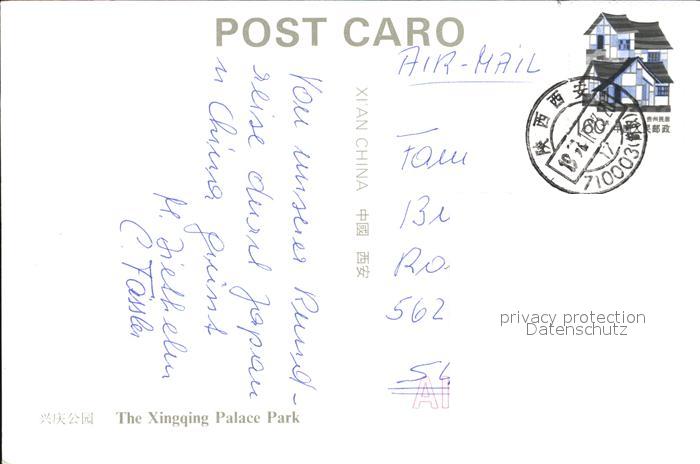 POST CARO
AIR-MAIL
Von unserer Rund-
reise durch Japan
u China grüsst
C. Fässler
XI'AN CHINA 中國 西安
Fam
562
兴庆公园 The Xingqing Palace Park
贵州民居
中国人民邮政
陕西西安
710003
privacy protection
Datenschutz